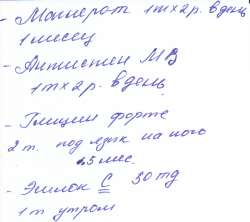 - Магнерот 1т х 2р. в день
1 месяц
- Антистен МВ
1т х 2р. в день
- Глицин форте
2 т. под язык на ночь
1,5 мес.
- Эгилок С 50 mg
1 т утром